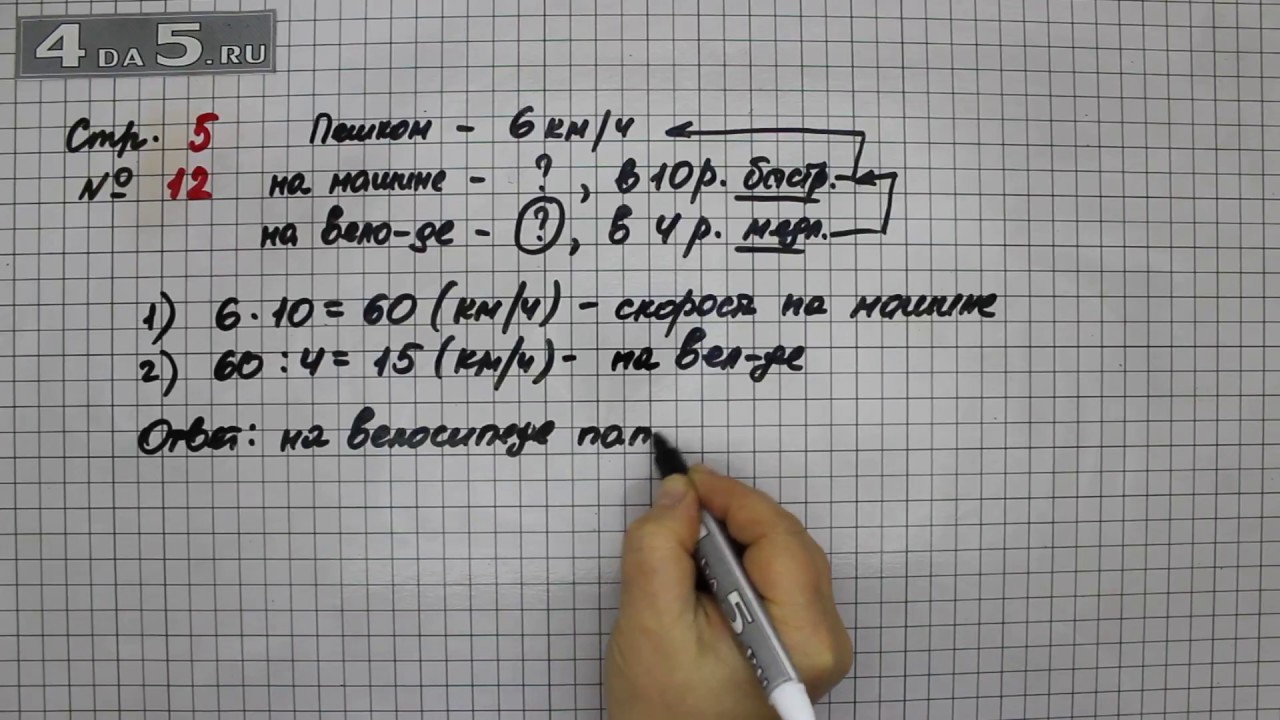 4 DA 5.RU
Стр. 5 Пешком - 6 км/ч
№ 12 на машине - ?, в 10 р. быстр.
на вело-де - ?, в 4 р. медл.
1) 6 · 10 = 60 (км/ч) - скорость на машине
2) 60 : 4 = 15 (км/ч) - на вел-де
Ответ: на велосипеде пап
DA 5.RU